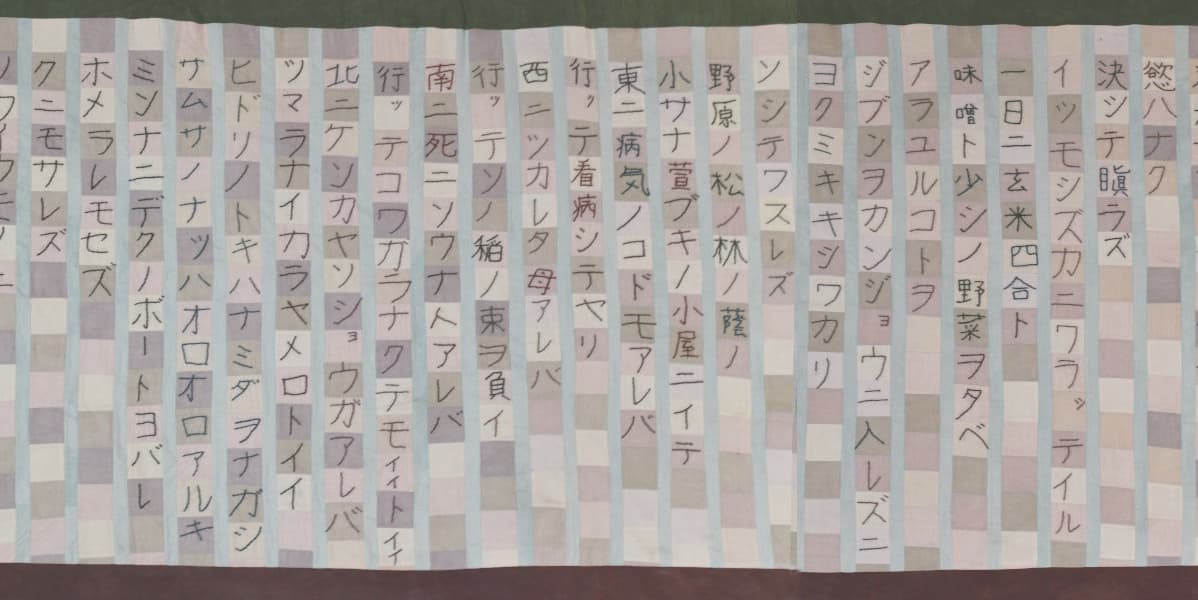 慾ハナク
決シテ瞋ラズ
イツモシズカニワラッテイル
一日ニ玄米四合ト
味噌ト少シノ野菜ヲタベ
アラユルコトヲ
ジブンヲカンジョウニ入レズニ
ヨクミキキシワカリ
ソシテワスレズ
野原ノ松ノ林ノ蔭ノ
小サナ萱ブキノ小屋ニイテ
東ニ病気ノコドモアレバ
行ッテ看病シテヤリ
西ニツカレタ母アレバ
行ッテソノ稲ノ束ヲ負イ
南ニ死ニソウナ人アレバ
行ッテコワガラナクテモイイトイイ
北ニケンカヤソショウガアレバ
ツマラナイカラヤメロトイイ
ヒドリノトキハナミダヲナガシ
サムサノナツハオロオロアルキ
ミンナニデクノボートヨバレ
ホメラレモセズ
クニモサレズ